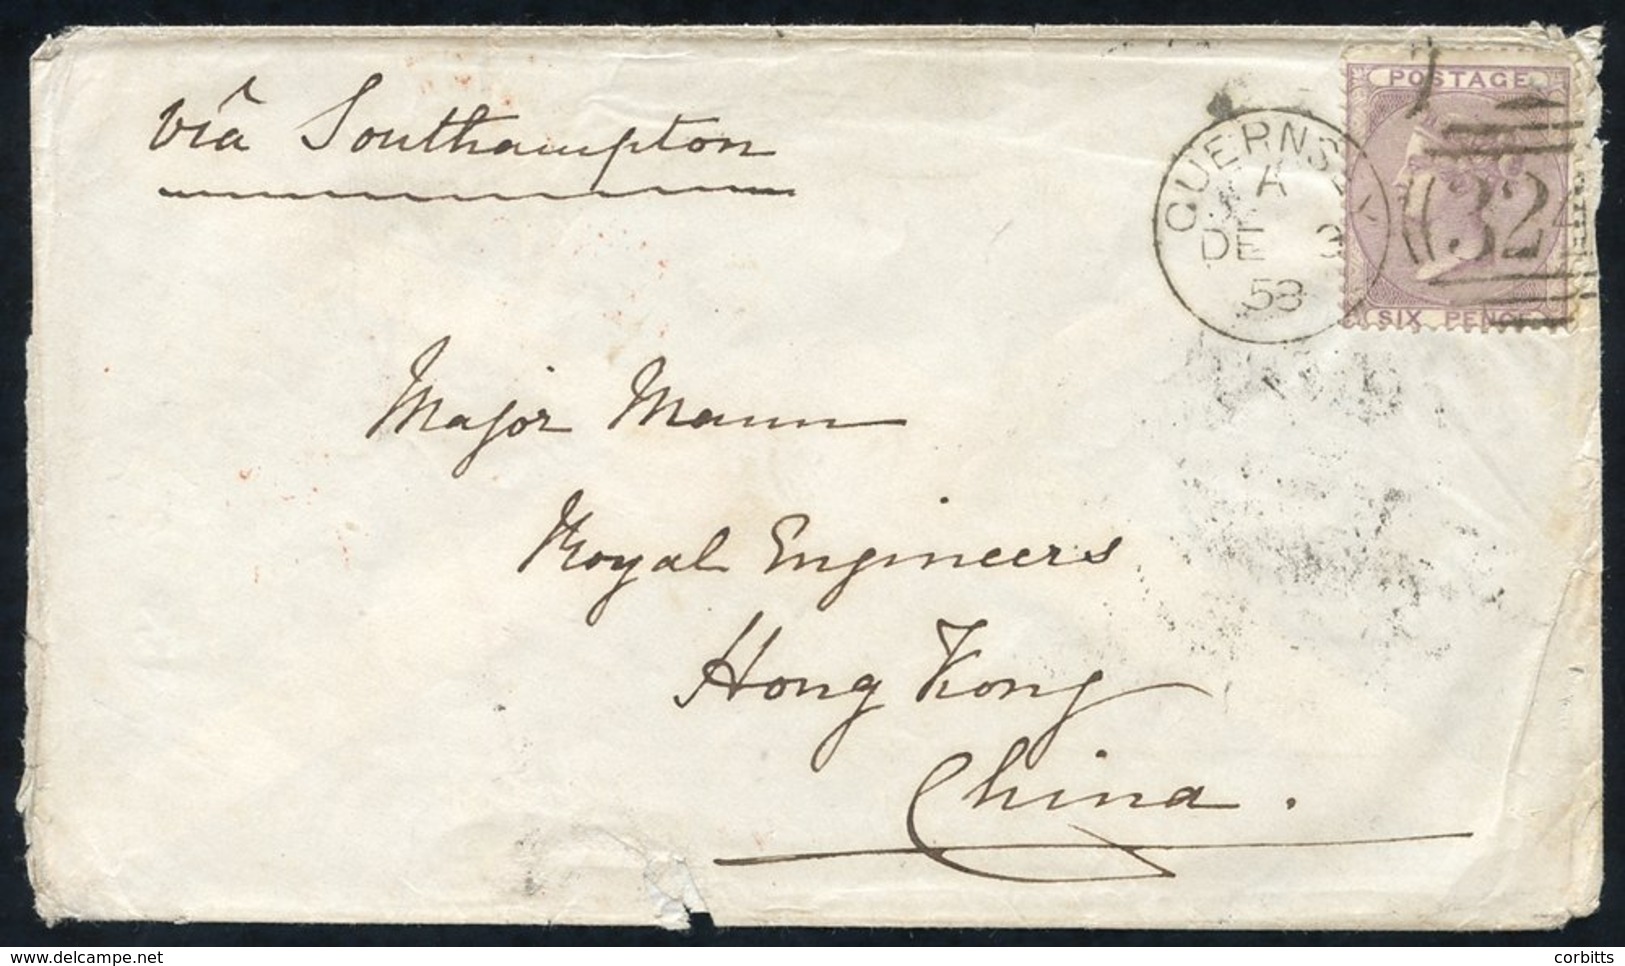 viâ Southampton
POSTAGE
GUERNSEY
A
DE 3
58
324
SIX PENCE
Major Mann
Royal Engineers
Hong Kong
China.
delcampe.net
corbitts